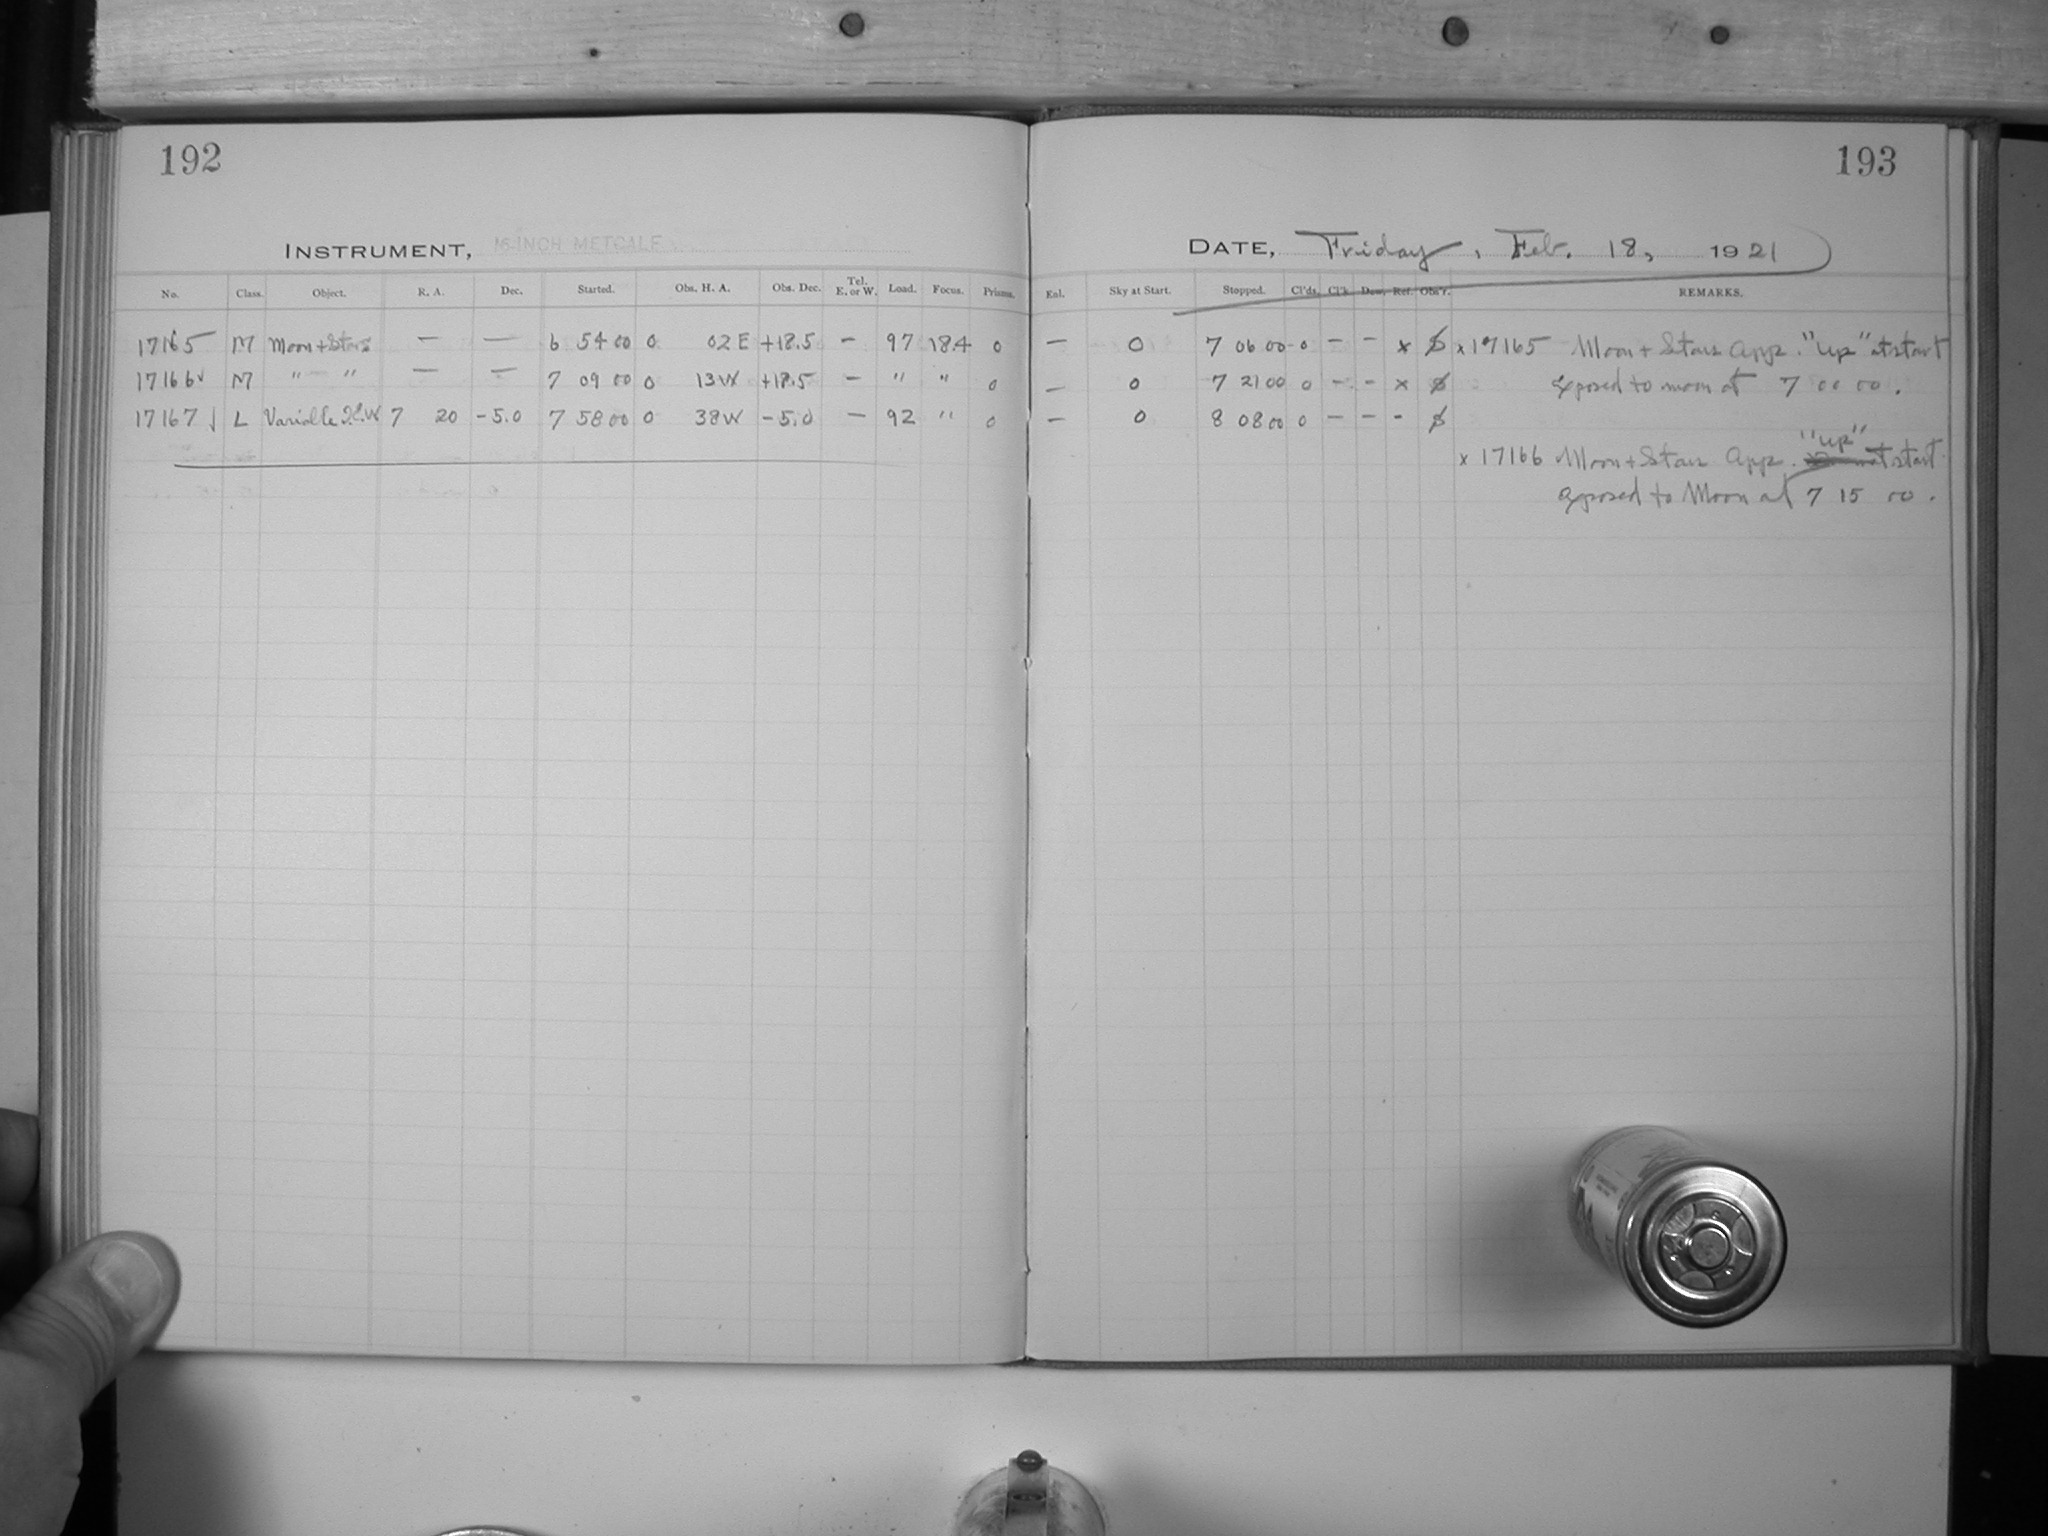 192
INSTRUMENT, 16-INCH METCALF
No. Class. Object. R. A. Dec. Started. Obs. H. A. Obs. Dec. Tel. E. or W. Load. Focus. Prisms.
17165 M Moon + Stars — — 6 54 00 0 02 E +18.5 — 97 18.4 0
17166 M " " — — 7 09 00 0 13 W +18.5 — " " 0
17167 L Variable 7 20 -5.0 7 58 00 0 38 W -5.0 — 92 " 0
193
DATE, Friday, Feb. 18, 1921
Enl. Sky at Start. Stopped. Cl'ds. Cl'k Dew. Ref. Obs'r. REMARKS.
— 0 7 06 00 0 — — x x 17165 Moon + Stars App. "up" at start
— 0 7 21 00 0 — — x exposed to moon at 7 00 00.
— 0 8 08 00 0 — — -
"up"
x 17166 Moon + Stars App. at start
exposed to Moon at 7 15 00.